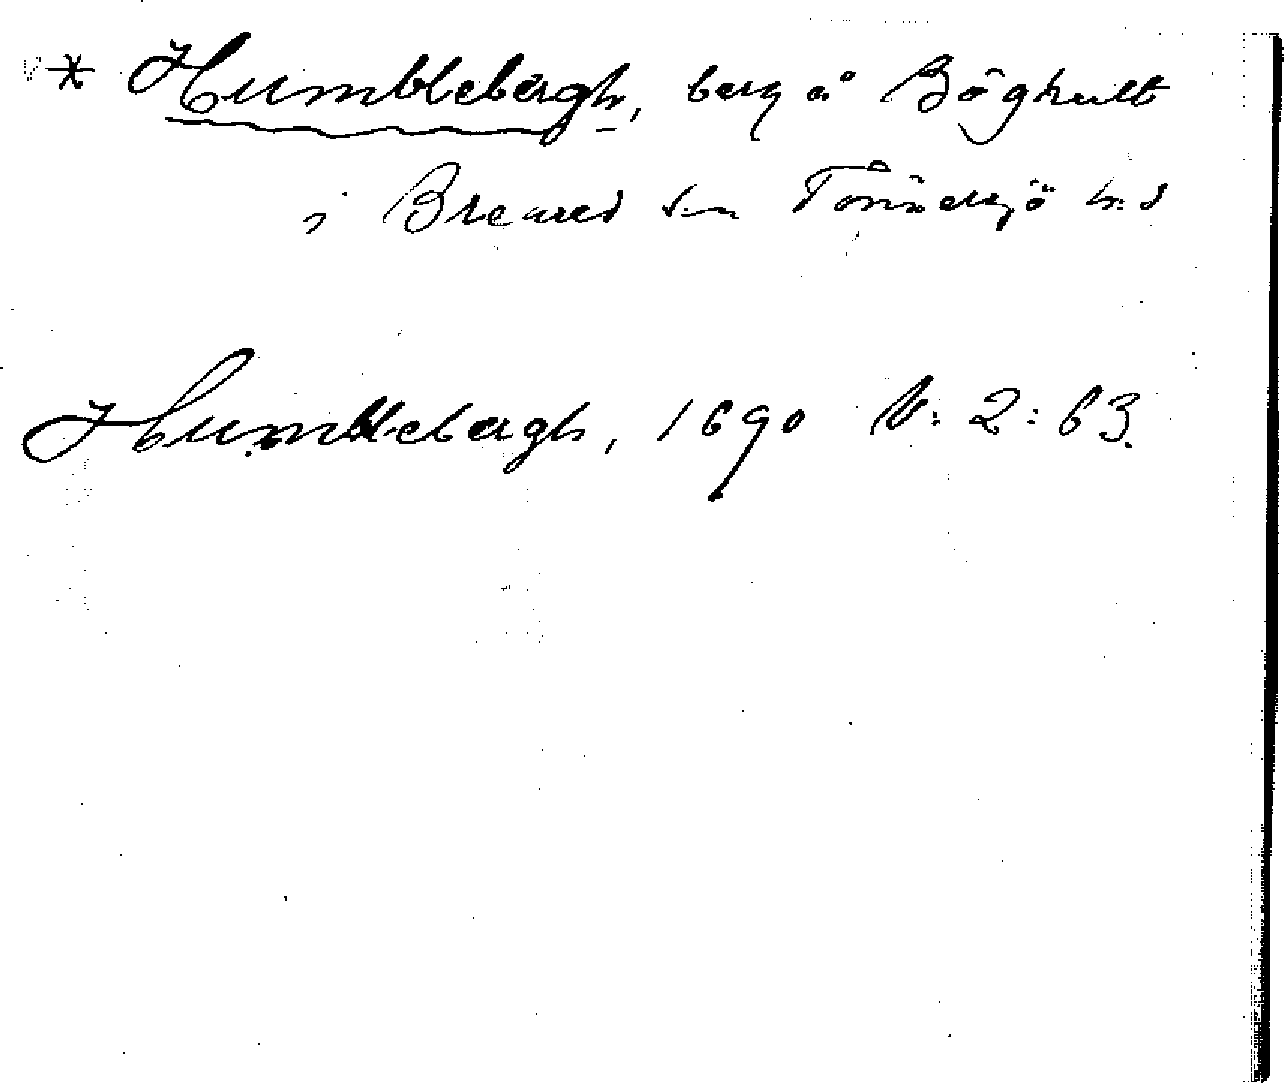 * Humblebergh, berg å Böghult
i Breared sn Tönnersjö hd
Humblebergh, 1690 N: 2: 63.